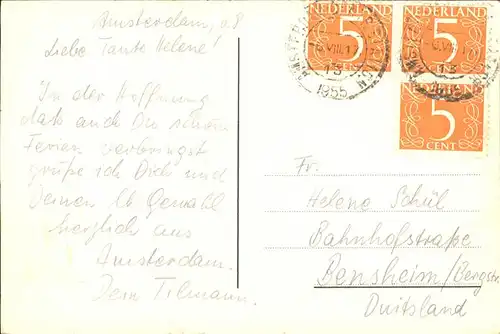 Amsterdam, 8.8
Liebe Tante Helene!
In der Hoffnung
daß auch Du schöne
Ferien verbringst
grüße ich Dich und
Deinen lb Gemahl
herzlich aus
Amsterdam.
Dein Tilmann.
NEDERLAND
5
CENT
NEDERLAND
5
NEDERLAND
5
CENT
VIII.17
13
1955
Fr.
Helene Schül
Bahnhofstraße
Bensheim/Bergstr
Duitsland